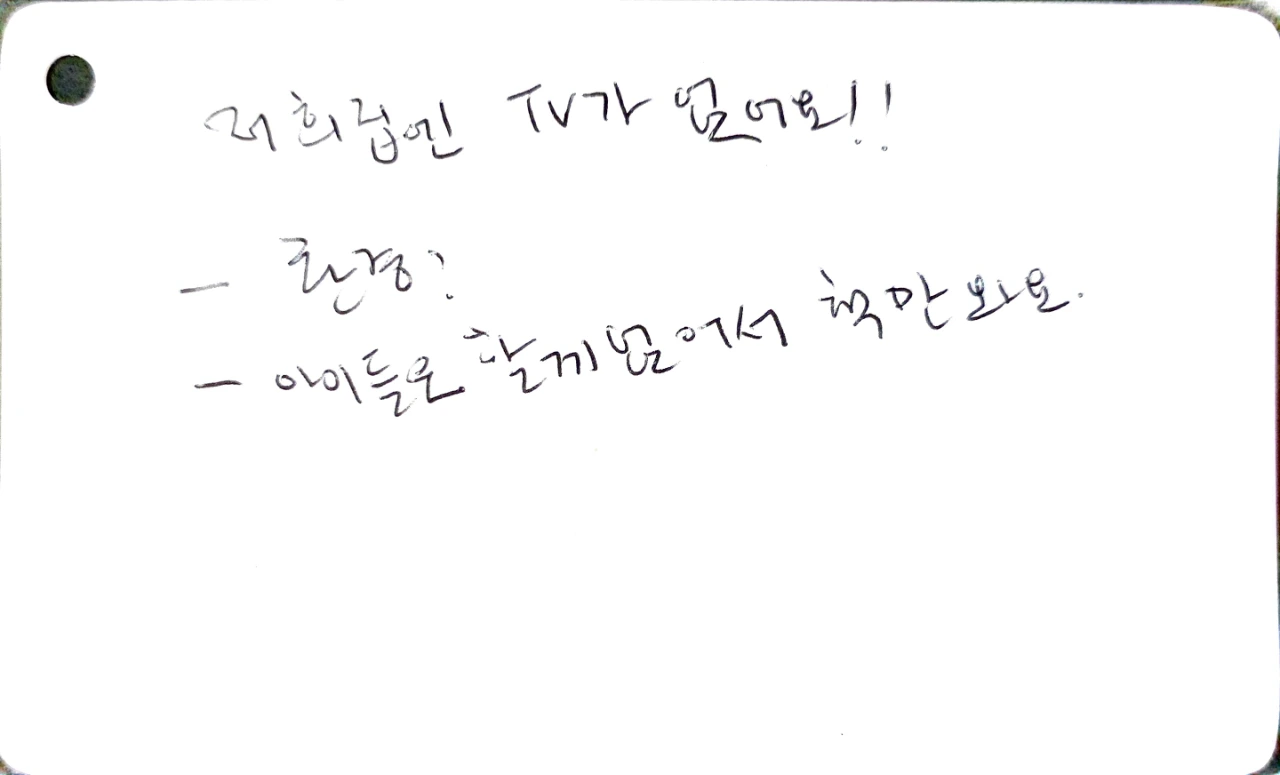 저희집엔 TV가 없어요!!
- 환경?
- 아이들은 할게없어서 책만 봐요.